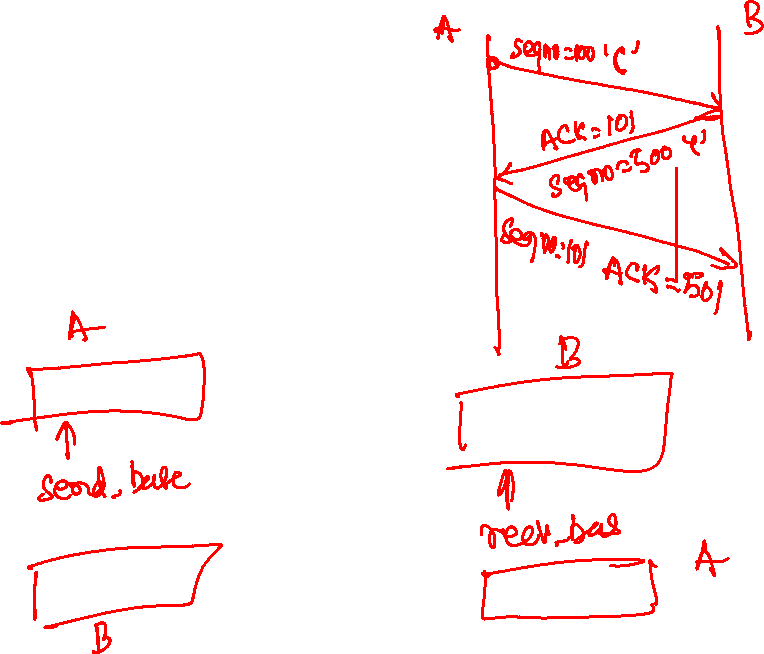 A B
seqno=100 'C'
ACK=101
seqno=500 'C'
seqno=101
ACK=501
A
send_base
B
recv_bas
B
A